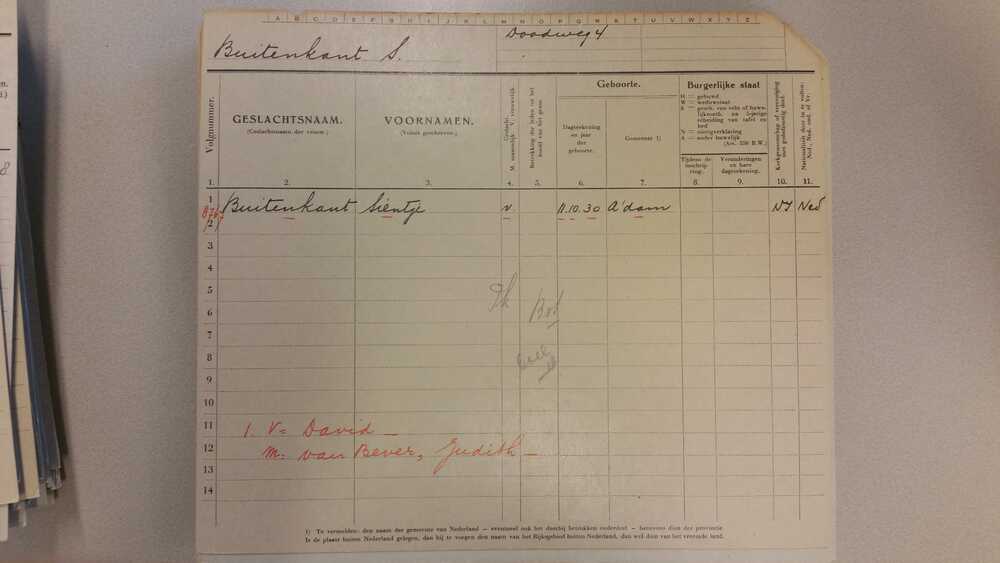 A B C D E F G H I J K L M N O P Q R S T U V W X Y Z
Doodweg 4
Buitenkant S.
Volgnummer.
GESLACHTSNAAM.
(Geslachtsnaam der vrouw.)
VOORNAMEN.
(Voluit geschreven.)
Geslacht.
M. mannelijk V. vrouwelijk
Betrekking der leden tot het hoofd van het gezin.
Geboorte.
Dagteekening en jaar der geboorte.
Gemeente 1)
Burgerlijke staat
H = gehuwd
W = weduwstaat
S = gesch. van echt of huwelijksontb. na 5-jarige scheiding van tafel en bed
N = nietigverklaring
A = ander huwelijk
(Art. 550 B.W.)
Tijdens de inschrijving.
Veranderingen en hare dagteekening.
Kerkgenootschap of vereeniging met godsdienstig doel.
1. 2. 3. 4. 5. 6. 7. 8. 9. 10. 11.
1 Buitenkant Sientje v 11.10.30 A'dam NI Ned
2
3
4
5
6 Bob
7
8
9
10
11 1. V= David
12 M: van Bever, Judith
13
14
1) Te vermelden: den naam der gemeente van Nederland — eventueel ook het daarbij betrokken onderdeel — benevens dien der provincie.
Is de plaats buiten Nederland gelegen, dan bij te voegen den naam van het Rijksgebied buiten Nederland, dan wel dien van het vreemde land.